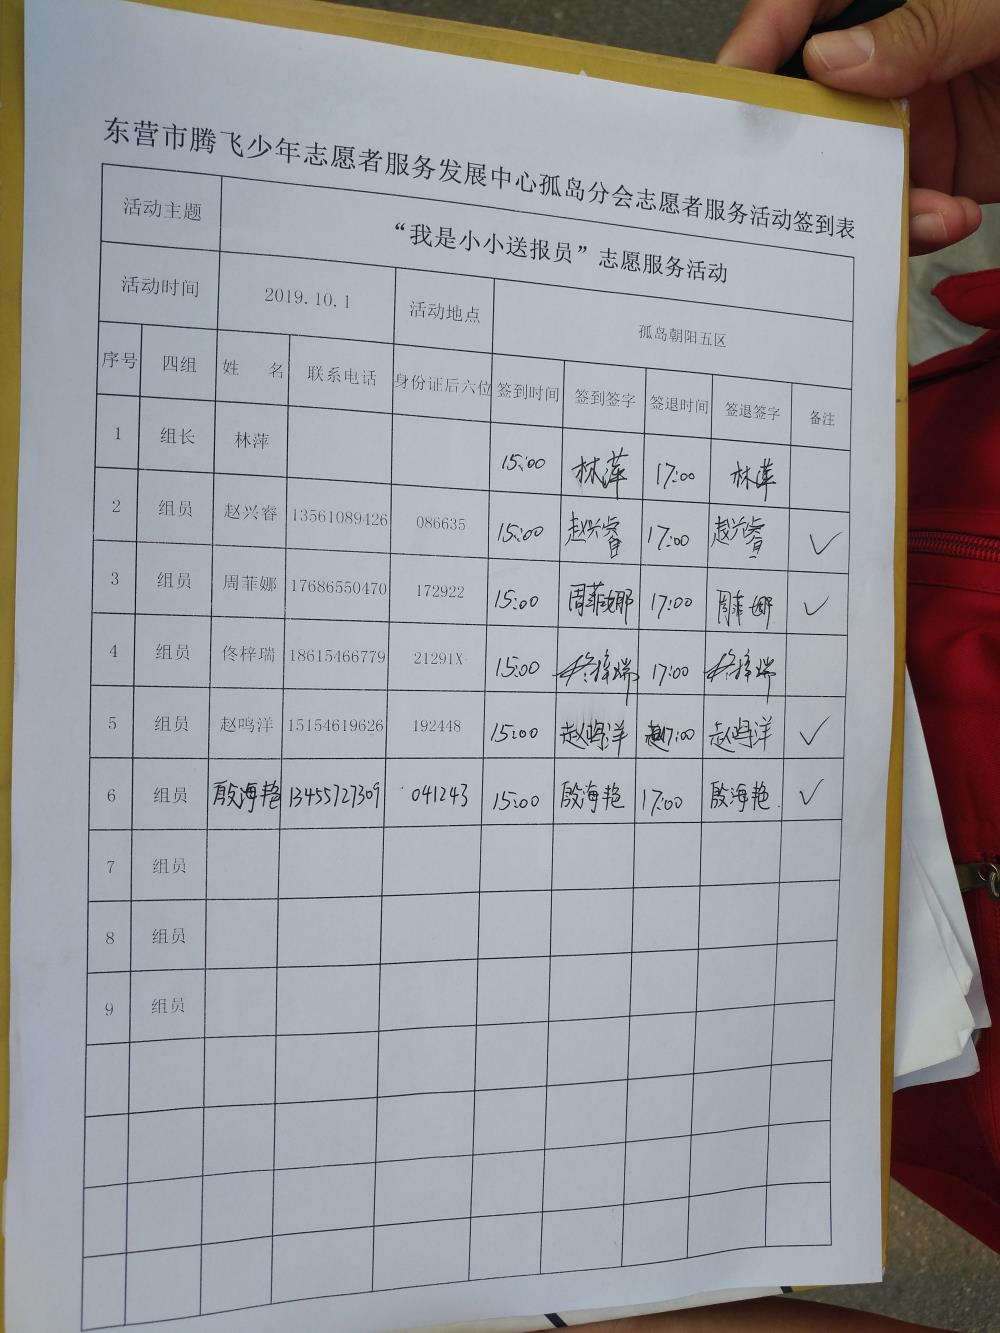 东营市腾飞少年志愿者服务发展中心孤岛分会志愿者服务活动签到表
活动主题 “我是小小送报员”志愿服务活动
活动时间 2019.10.1 活动地点 孤岛朝阳五区
序号 四组 姓 名 联系电话 身份证后六位 签到时间 签到签字 签退时间 签退签字 备注
1 组长 林萍 15:00 林萍 17:00 林萍
2 组员 赵兴睿 13561089426 086635 15:00 赵兴睿 17:00 赵兴睿 ✓
3 组员 周菲娜 17686550470 172922 15:00 周菲娜 17:00 周菲娜 ✓
4 组员 佟梓瑞 18615466779 21291X 15:00 佟梓瑞 17:00 佟梓瑞
5 组员 赵鸣洋 15154619626 192448 15:00 赵鸣洋 17:00 赵鸣洋 ✓
6 组员 殷海艳 13455727309 041243 15:00 殷海艳 17:00 殷海艳 ✓
7 组员
8 组员
9 组员